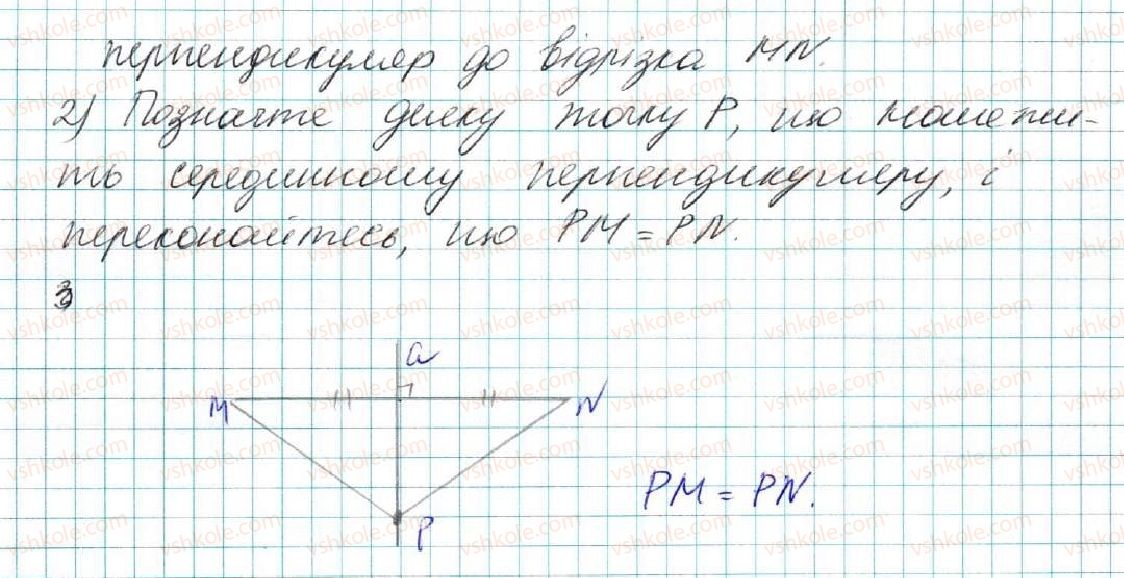 перпендикуляр до відрізка MN.
2) Позначте деяку точку P, що належи-
ть серединному перпендикуляру, і
переконайтесь, що PM = PN.
3
a
M N
PM = PN.
P
vshkole.com